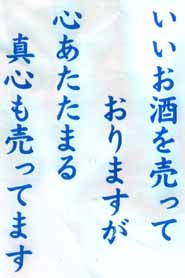 いいお酒を売って
おりますが
心あたたまる
真心も売ってます